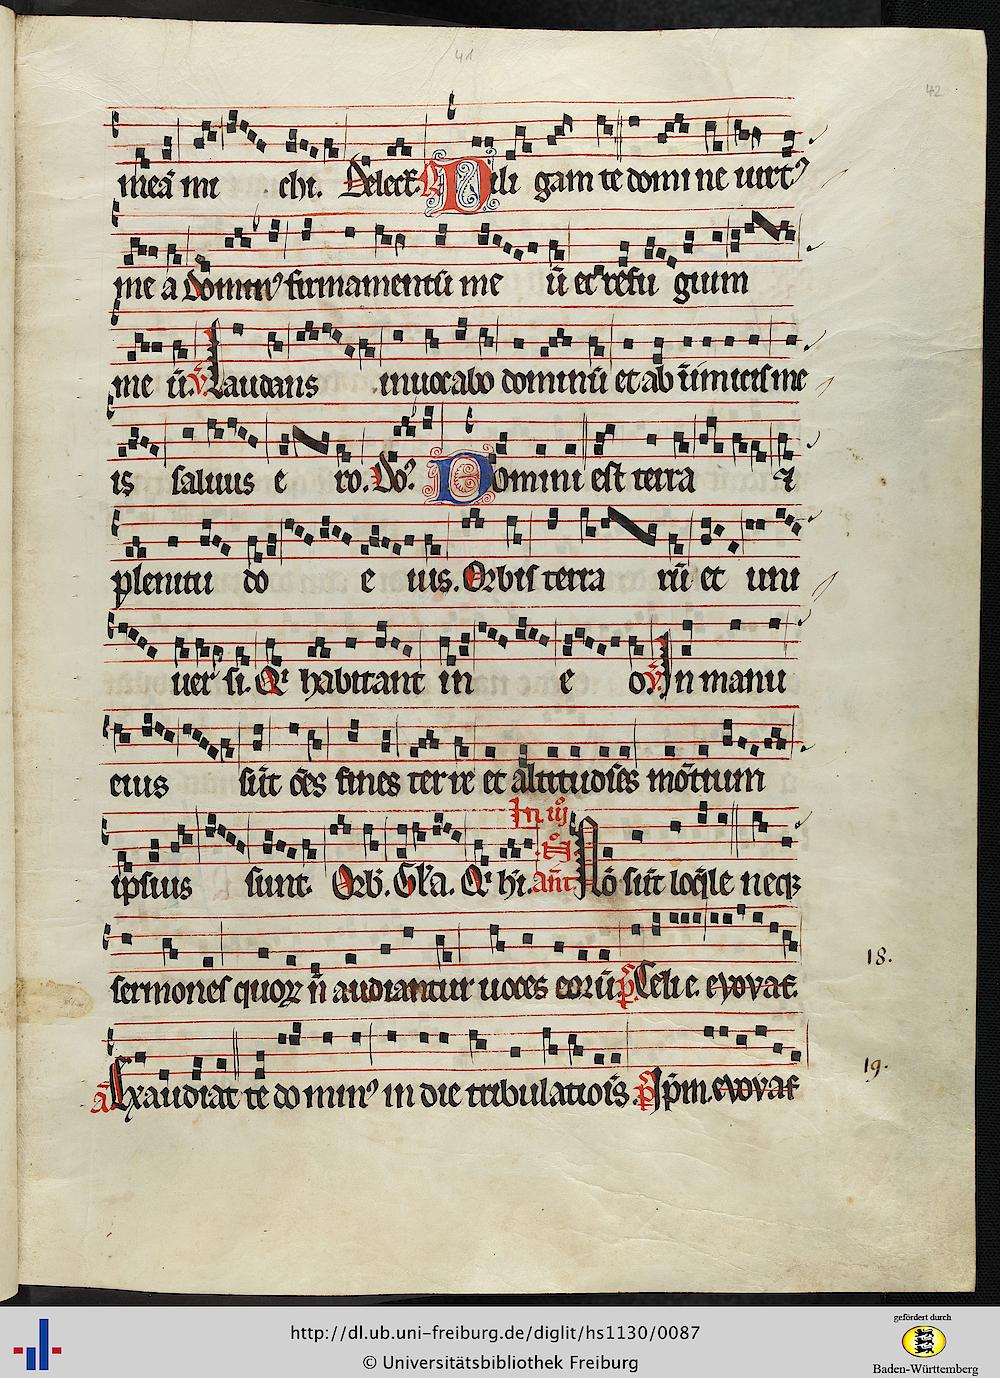 41
42
meā mi chi. Delect. R Dili gam te domi ne uirtꝰ
me a dominꝰ firmamentū me ū et refu gium
me ū. V Laudans inuocabo dominū et ab inimicis me
is saluus e ro. Do. Domini est terra ⁊
plenitu do e ius. Orbis terra rū et uni
uer si. Qi habitant in e o. V In manu
eius sūt oēs fines terre et altitudīes mōtium
In iij
N
ipsius sunt. Orb. Gl'a. Qi hi. ant Nō sūt loq̄le neqꝫ
sermones quoꝝ n̄ audiantur uoces eoꝝū. p̄s Celi e. evovae.
a Exaudiat te do minꝰ in die tribulatiois. p̄s Ip̄m. evovae
18.
19.
http://dl.ub.uni-freiburg.de/diglit/hs1130/0087
© Universitätsbibliothek Freiburg
gefördert durch
Baden-Württemberg